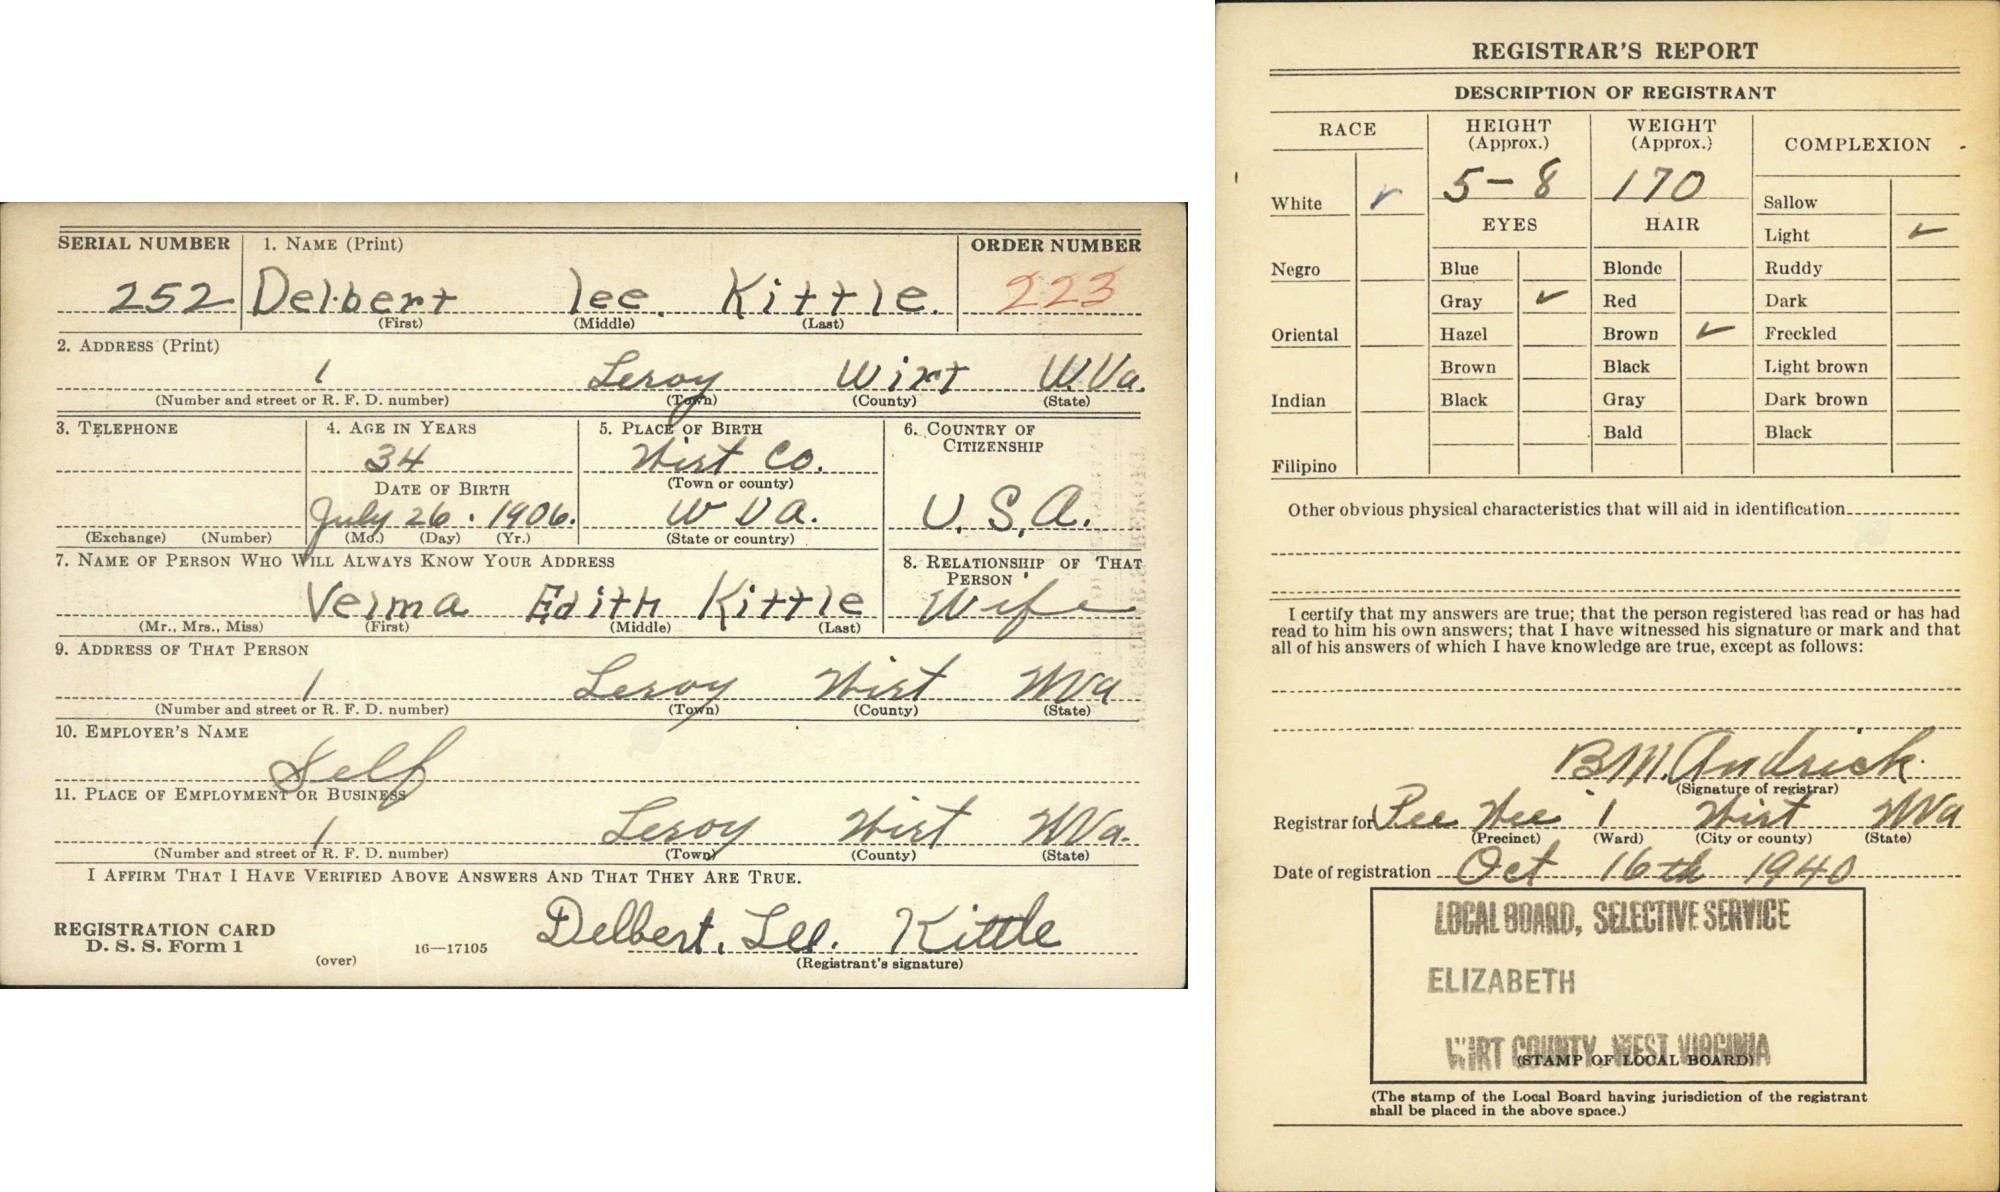 SERIAL NUMBER 1. NAME (Print) ORDER NUMBER
252 Delbert lee. Kittle. 223
(First) (Middle) (Last)
2. ADDRESS (Print)
1 Leroy Wirt W.Va.
(Number and street or R. F. D. number) (Town) (County) (State)
3. TELEPHONE 4. AGE IN YEARS 5. PLACE OF BIRTH 6. COUNTRY OF CITIZENSHIP
34 Wirt Co.
(Town or county)
DATE OF BIRTH
July 26. 1906. W Va. U.S.A.
(Exchange) (Number) (Mo.) (Day) (Yr.) (State or country)
7. NAME OF PERSON WHO WILL ALWAYS KNOW YOUR ADDRESS 8. RELATIONSHIP OF THAT PERSON
Velma Edith Kittle Wife
(Mr., Mrs., Miss) (First) (Middle) (Last)
9. ADDRESS OF THAT PERSON
1 Leroy Wirt WVa
(Number and street or R. F. D. number) (Town) (County) (State)
10. EMPLOYER'S NAME
Self
11. PLACE OF EMPLOYMENT OR BUSINESS
1 Leroy Wirt WVa.
(Number and street or R. F. D. number) (Town) (County) (State)
I AFFIRM THAT I HAVE VERIFIED ABOVE ANSWERS AND THAT THEY ARE TRUE.
REGISTRATION CARD
D. S. S. Form 1 16—17105 Delbert. Lee. Kittle
(over) (Registrant's signature)
REGISTRAR'S REPORT
DESCRIPTION OF REGISTRANT
RACE HEIGHT (Approx.) WEIGHT (Approx.) COMPLEXION
5-8 170
White ✓ Sallow
EYES HAIR Light ✓
Negro Blue Blonde Ruddy
Gray ✓ Red Dark
Oriental Hazel Brown ✓ Freckled
Brown Black Light brown
Indian Black Gray Dark brown
Bald Black
Filipino
Other obvious physical characteristics that will aid in identification
I certify that my answers are true; that the person registered has read or has had
read to him his own answers; that I have witnessed his signature or mark and that
all of his answers of which I have knowledge are true, except as follows:
B.M. Andrick.
(Signature of registrar)
Registrar for Pee Wee 1 Wirt WVa
(Precinct) (Ward) (City or county) (State)
Date of registration Oct 16th 1940
LOCAL BOARD, SELECTIVE SERVICE
ELIZABETH
WIRT COUNTY, WEST VIRGINIA
(STAMP OF LOCAL BOARD)
(The stamp of the Local Board having jurisdiction of the registrant
shall be placed in the above space.)